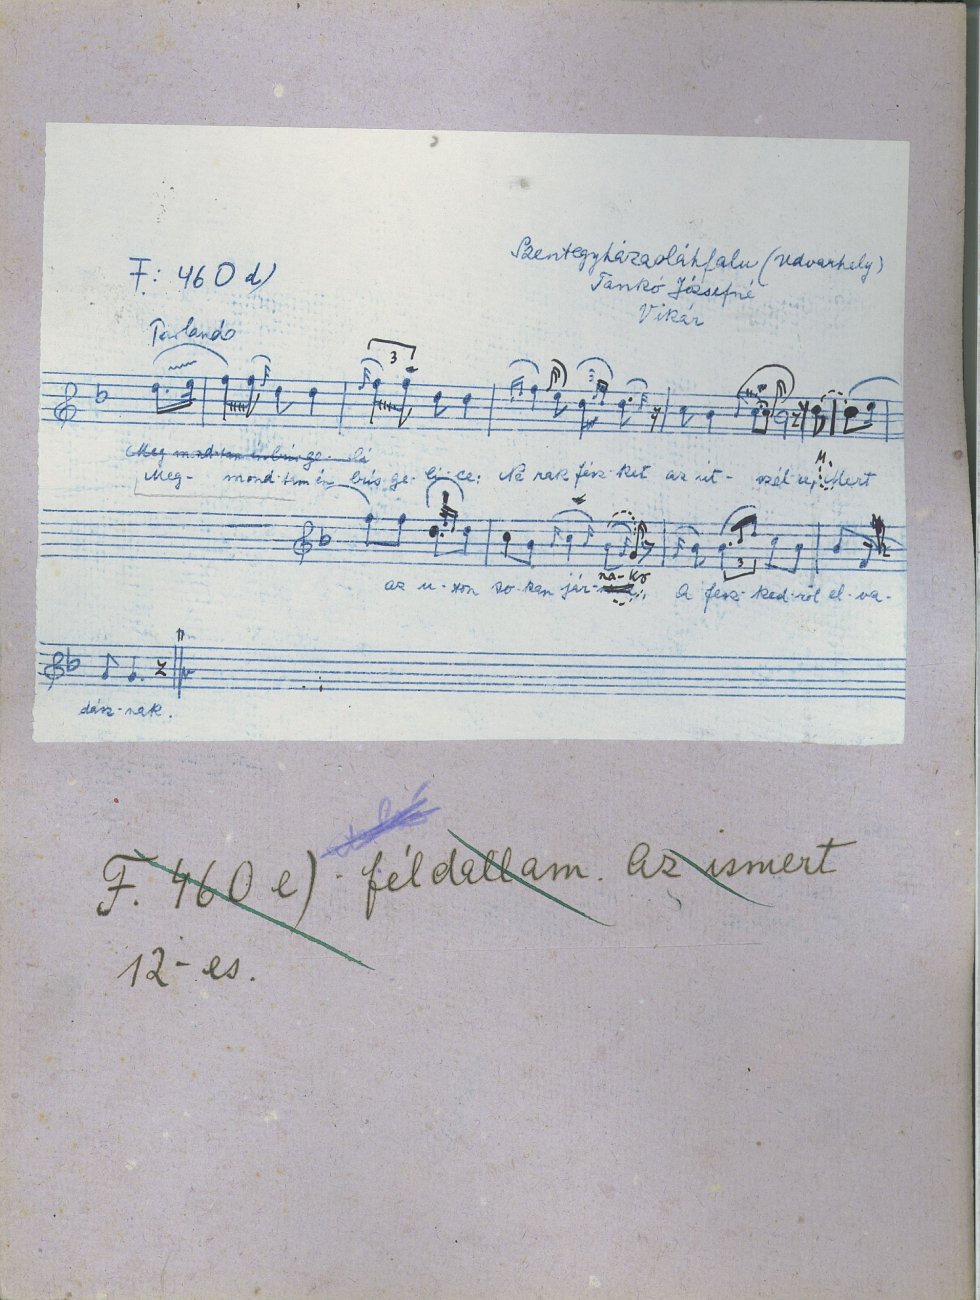 F: 460 d)
Szentegyházasoláhfalu (Udvarhely)
Tankó Józsefné
Vikár
Parlando
3
Meg mondtam én bús ge- lé
Meg- mond-tam én bús ge-li-ce: Ne rak fész-ket az út- szél-re, Mert
3
az u-ton so-kan jár-
na-kø
A fész-ked-ről el-va-
3
dász-nak.
F. 460 e) féldallam. Az ismert
12-es.